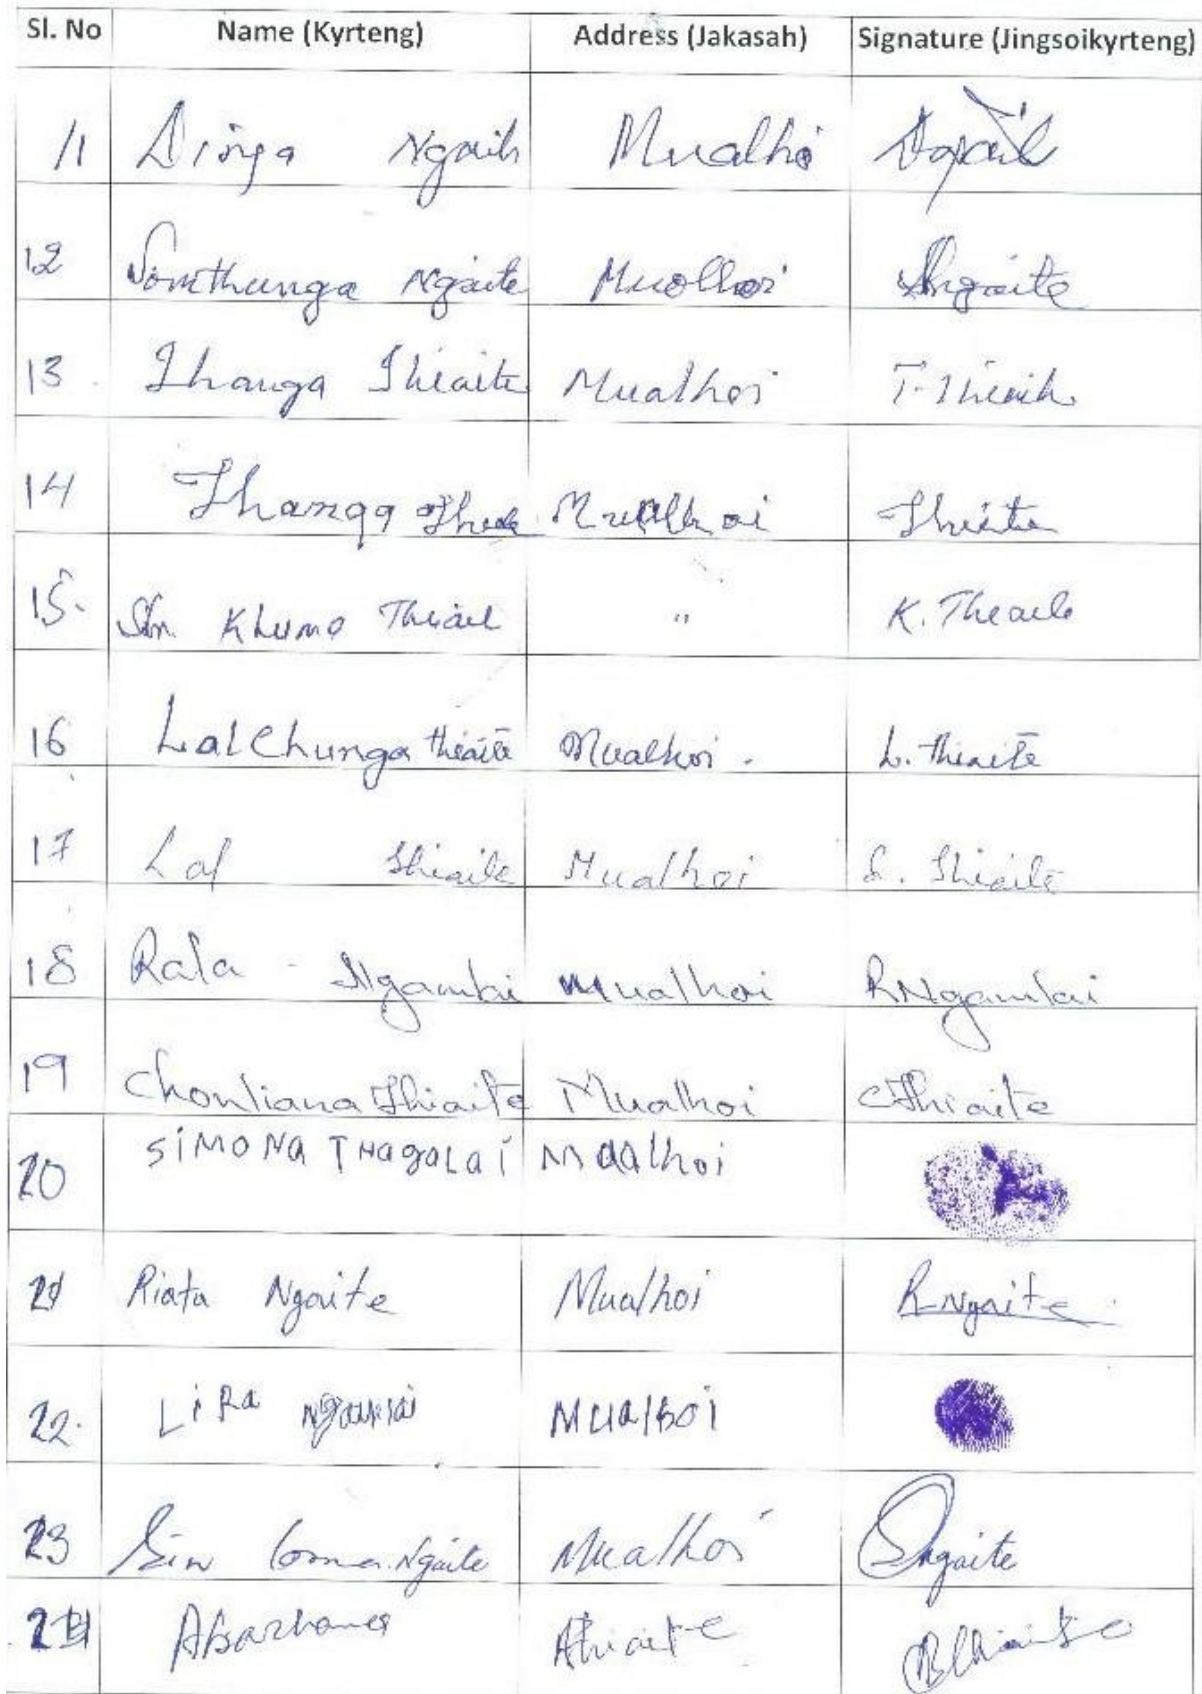 Sl. No Name (Kyrteng) Address (Jakasah) Signature (Jingsoikyrteng)
11 Dinga Ngaih Mualhoi
12 Somthunga Ngaite Muolhoi Sngaite
13 Thanga Thiaite Mualhoi T. Thiaite
14 Thanga Mualhoi Thiaite
15. Khumo Thiaite " K. Theaile
16 Lalchunga thiaite Mualhoi. L. thiaite
17 Lal Thiaite Mualhoi L. Thiaite
18 Rala - Ngamlai Mualhoi R Ngamlai
19 Chonliana Thiaite Mualhoi C Thiaite
20 SiMONa THagaLai Maalhoi
21 Riata Ngaite Mualhoi R Ngaite
22. LiRa Ngamlai Mualhoi
23 Sin Ngaite Mualhoi Sngaite
24 Thiaite